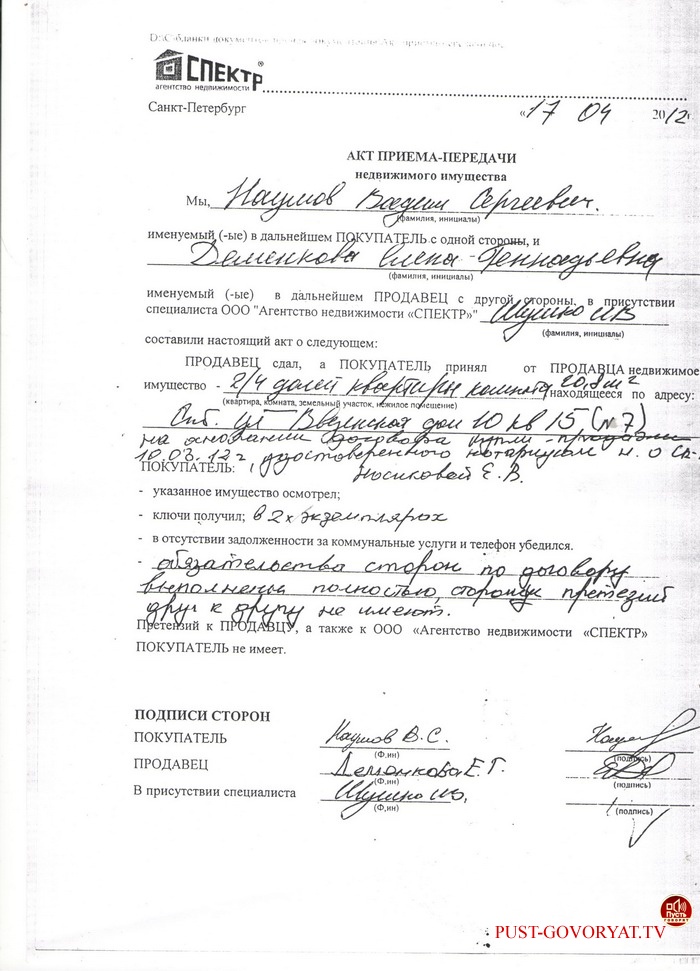 СПЕКТР®
агентство недвижимости
Санкт-Петербург «17 04 2012г.
АКТ ПРИЕМА-ПЕРЕДАЧИ
недвижимого имущества
Мы, Наумов Вадим Сергеевич.
(фамилия, инициалы)
именуемый (-ые) в дальнейшем ПОКУПАТЕЛЬ с одной стороны, и
Деменкова Елена Геннадьевна
(фамилия, инициалы)
именуемый (-ые) в дальнейшем ПРОДАВЕЦ с другой стороны, в присутствии
специалиста ООО "Агентство недвижимости «СПЕКТР»"
(фамилия, инициалы)
составили настоящий акт о следующем:
ПРОДАВЕЦ сдал, а ПОКУПАТЕЛЬ принял от ПРОДАВЦА недвижимое
имущество - 2/4 долей квартиры комната 20,8 м2 находящееся по адресу:
(квартира, комната, земельный участок, нежилое помещение)
Спб. ул Введенская дом 10 кв 15 (№7)
на основании договора купли-продажи
10.03.12 г удостоверенного нотариусом н. о СП-
ПОКУПАТЕЛЬ: Носиковой Е.В.
- указанное имущество осмотрел;
- ключи получил; в 2х экземплярах
- в отсутствии задолженности за коммунальные услуги и телефон убедился.
- обязательства сторон по договору
выполнены полностью, стороны претезий
друг к другу не имеют.
Претензий к ПРОДАВЦУ, а также к ООО «Агентство недвижимости «СПЕКТР»
ПОКУПАТЕЛЬ не имеет.
ПОДПИСИ СТОРОН
ПОКУПАТЕЛЬ Наумов В.С.
(Ф,ин) (подпись)
ПРОДАВЕЦ Деменкова Е.Г.
(Ф,ин) (подпись)
В присутствии специалиста
(Ф,ин) (подпись)
ПУСТЬ ГОВОРЯТ
PUST-GOVORYAT.TV